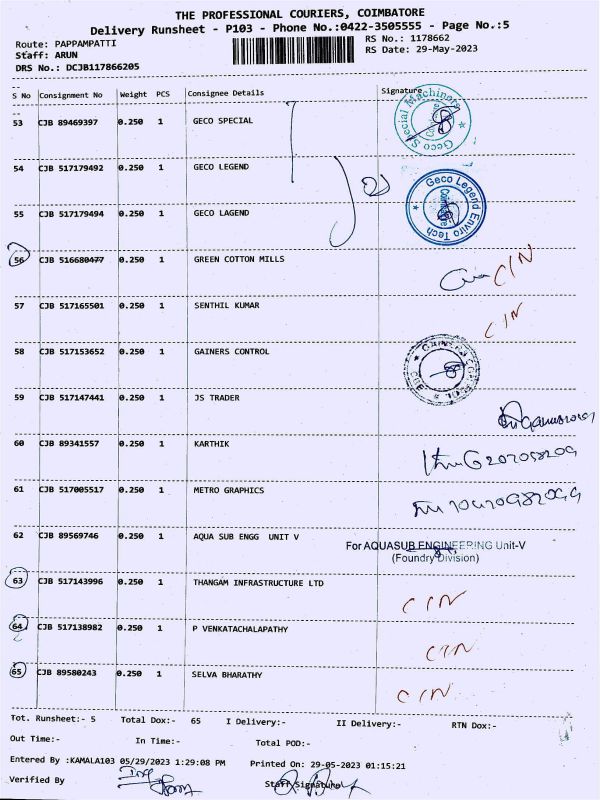 THE PROFESSIONAL COURIERS, COIMBATORE
Delivery Runsheet - P103 - Phone No.:0422-3505555 - Page No.:5
Route: PAPPAMPATTI RS No.: 1178662
Staff: ARUN RS Date: 29-May-2023
DRS No.: DCJB117866205
S No Consignment No Weight PCS Consignee Details Signature
53 CJB 89469397 0.250 1 GECO SPECIAL
Geco Special Machines
54 CJB 517179492 0.250 1 GECO LEGEND
Geco Legend Enviro Tech
Coimbatore
55 CJB 517179494 0.250 1 GECO LAGEND
56 CJB 516680477 0.250 1 GREEN COTTON MILLS CIN
57 CJB 517165501 0.250 1 SENTHIL KUMAR CIN
58 CJB 517153652 0.250 1 GAINERS CONTROL
59 CJB 517147441 0.250 1 JS TRADER
60 CJB 89341557 0.250 1 KARTHIK
61 CJB 517005517 0.250 1 METRO GRAPHICS
62 CJB 89569746 0.250 1 AQUA SUB ENGG UNIT V For AQUASUB ENGINEERING Unit-V
(Foundry Division)
63 CJB 517143996 0.250 1 THANGAM INFRASTRUCTURE LTD CIN
64 CJB 517138982 0.250 1 P VENKATACHALAPATHY CIN
65 CJB 89580243 0.250 1 SELVA BHARATHY CIN
Tot. Runsheet:- 5 Total Dox:- 65 I Delivery:- II Delivery:- RTN Dox:-
Out Time:- In Time:- Total POD:-
Entered By :KAMALA103 05/29/2023 1:29:08 PM Printed On: 29-05-2023 01:15:21
Verified By Staff Signature